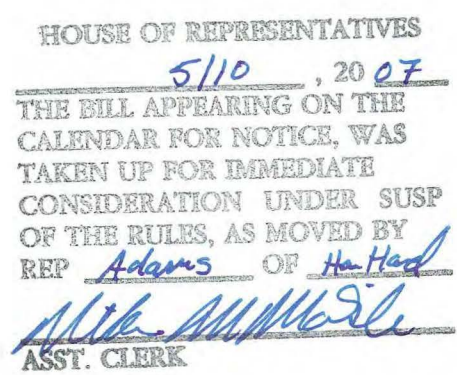 HOUSE OF REPRESENTATIVES
5/10, 20 07
THE BILL APPEARING ON THE
CALENDAR FOR NOTICE, WAS
TAKEN UP FOR IMMEDIATE
CONSIDERATION UNDER SUSP
OF THE RULES, AS MOVED BY
REP Adams OF
ASST. CLERK